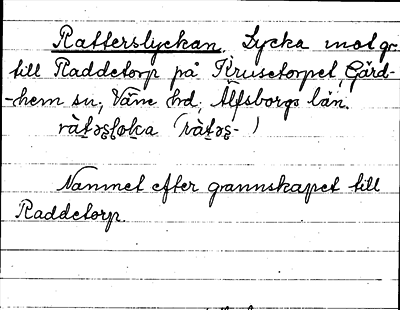 Ratterslyckan. Lycka mot gr.
till Raddetorp på Krusetorpet, Gärd-
-hem sn, Väne hd, Älfsborgs län.
Namnet efter grannskapet till
Raddetorp.